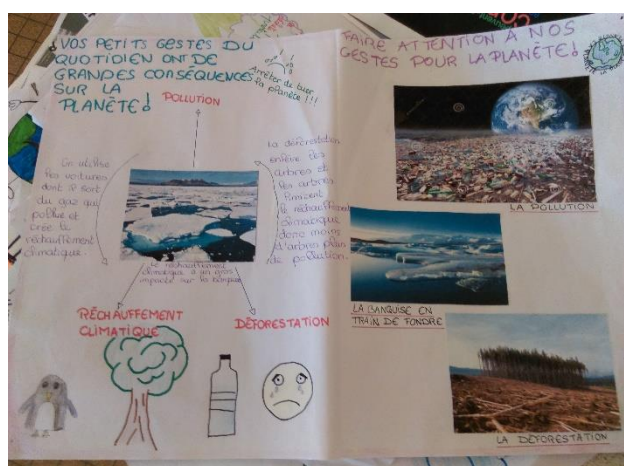 VOS PETITS GESTES DU
QUOTIDIEN ONT DE
GRANDES CONSÉQUENCES
SUR LA
PLANÈTE!
Arrêter de tuer
la planète !!!
POLLUTION
On utilise
des voitures
dont il sort
du gaz qui
pollue et
crée le
réchauffement
climatique.
La déforestation
enlève des
arbres et
les arbres
le réchauffement
climatique
donc moins
d'arbres plus
de pollution.
Le réchauffement
climatique a un gros
impacte sur la banquise
RÉCHAUFFEMENT
CLIMATIQUE
DÉFORESTATION
FAIRE ATTENTION À NOS
GESTES POUR LA PLANÈTE!
LA POLLUTION
LA BANQUISE EN
TRAIN DE FONDRE
LA DÉFORESTATION